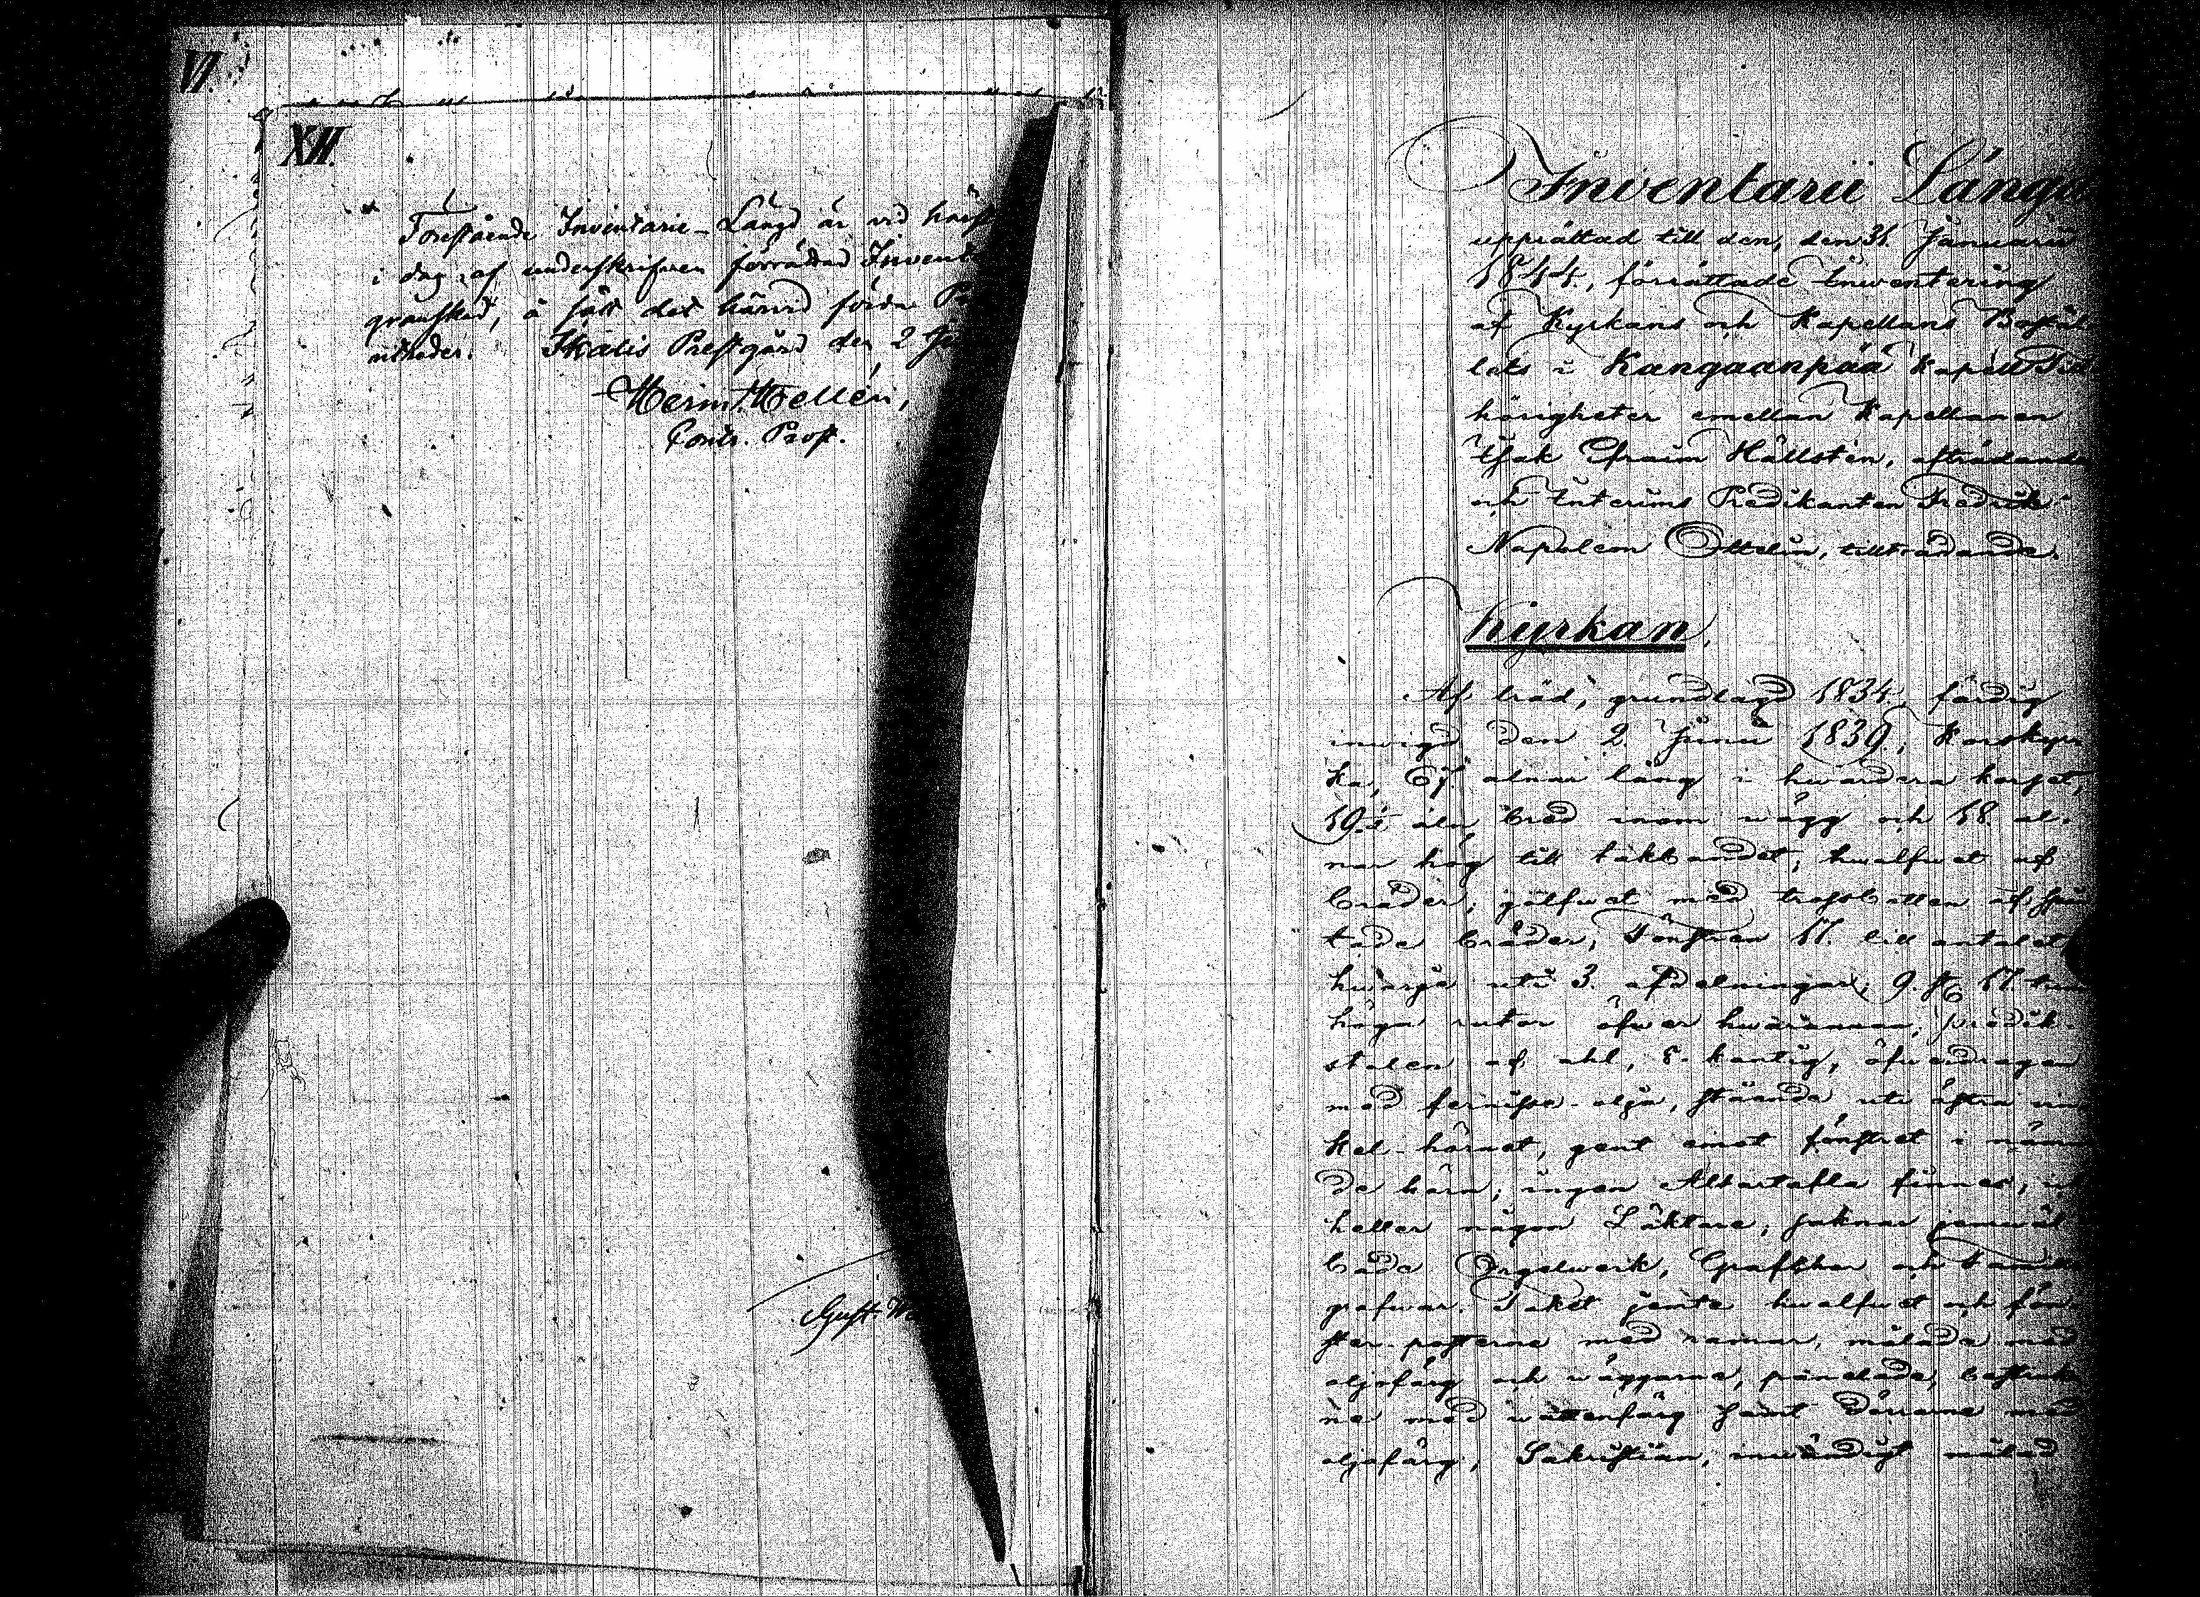 VI.
XII.
Förestående Inventarie-Längd är vid
i dag af underskrifwen förrättad
granskad, å sätt det härvid förda
utreder. Ikalis Prestgård den 2
Herm. Hellén,
Contr. Prost.
Gust.
Inventarii Längd
upprättad till den, den 31 Januarii
1844, förrättade Inwentering
af Kyrkans och Kapellans Bostäl
lets i Kangaanpää Kapell Till
hörigheter emellan Kapellanen
Isak Efraim Hällstén, afträdande
och Interims Predikanten Fredrik
Napoleon Ottelin, tillträdande.
Kyrkan.
Af träd, grundlagd 1834, färdig
inwigd den 2 Junii 1839, Korskyr
ka, 67 alnar lång i hwardera korset,
19½ aln bred inom wägg och 18 al-
nar hög till takbandet, hwalfwet af
bräder, golfwet med trossbotten af spån
tade bräder, Fönstren 17 till antalet
hwarje uti 3 afdelningar, 9 st. 17 tum
höga rutor öfwer hwarannan, predik-
stolen af ahl, 8-kantig, öfwerdragen
med fernissa-olja, stående uti östra win
kel-hörnet, gent emot fönstret i nämn
de hörn; ingen Altartafla finnes,
heller någon Läktare, saknar jemwäl
både Orgelwerk, Grafkor och
grafwar. Taket jemte hwalfwet och fön-
ster-posterne med ramar, målade med
oljefärg och wäggarne, panelade, bestruk
ne med wattenfärg samt Dörrarne med
oljefärg, Sakristian, inwändigt målad